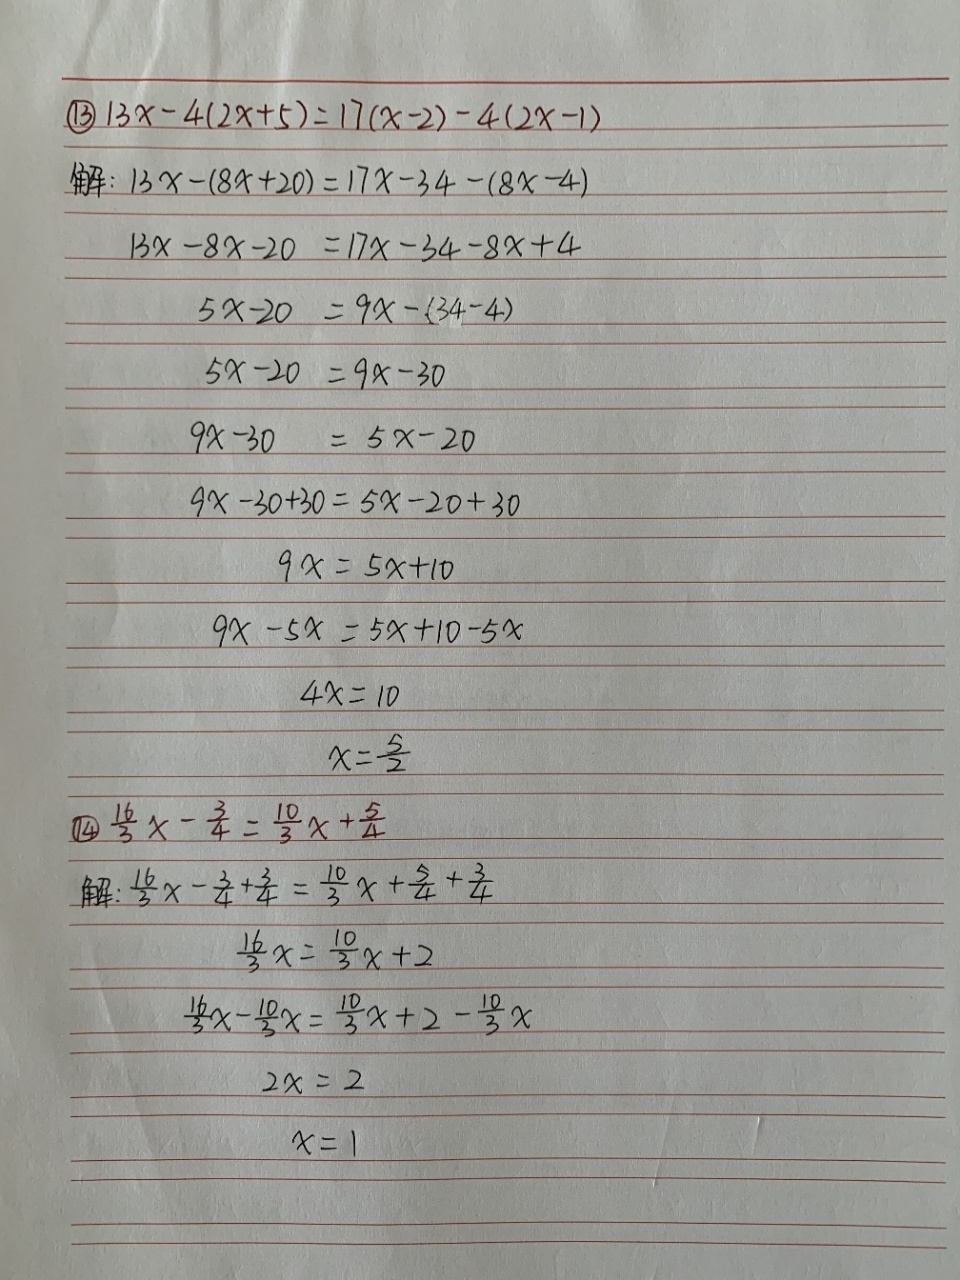 ⑬ 13x-4(2x+5)=17(x-2)-4(2x-1)
解: 13x-(8x+20)=17x-34-(8x-4)
13x-8x-20 =17x-34-8x+4
5x-20 =9x-(34-4)
5x-20 =9x-30
9x-30 = 5x-20
9x-30+30=5x-20+30
9x=5x+10
9x-5x=5x+10-5x
4x=10
x=5/2
⑭ 16/3x-3/4=10/3x+5/4
解: 16/3x-3/4+3/4=10/3x+5/4+3/4
16/3x=10/3x+2
16/3x-10/3x=10/3x+2-10/3x
2x=2
x=1